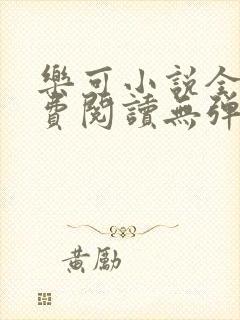 樂可小說全
費閱讀無彈
黃勵